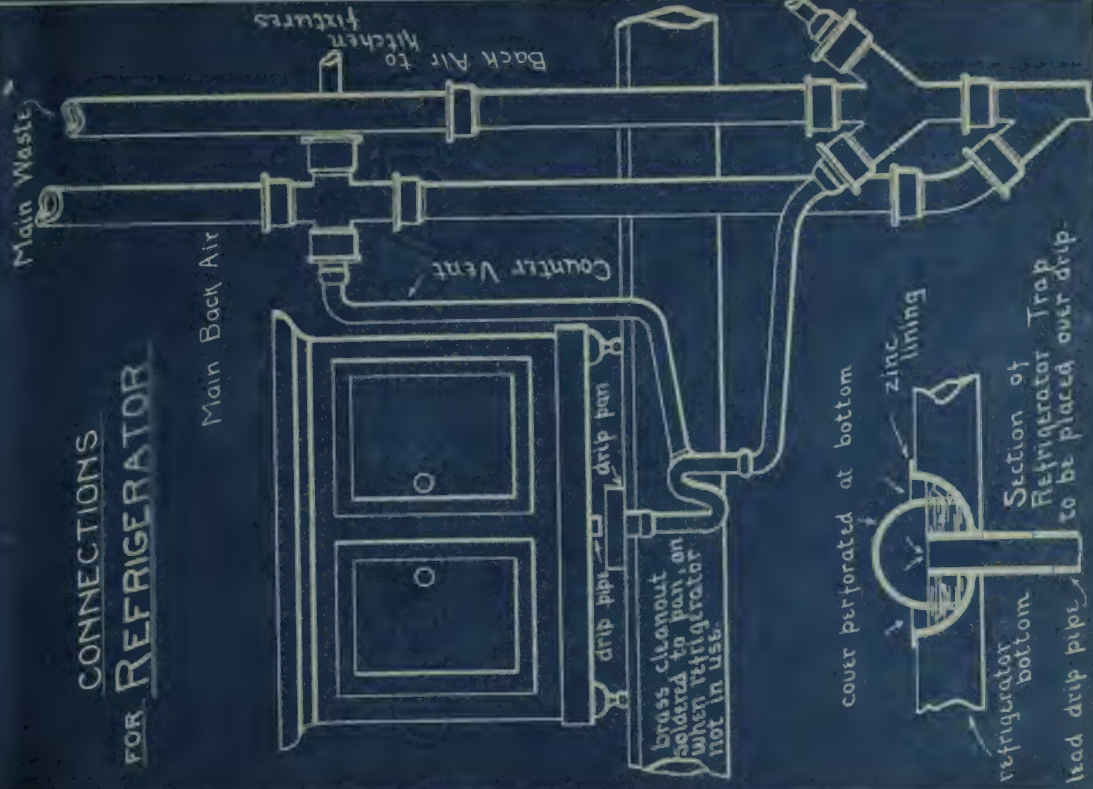 CONNECTIONS
FOR REFRIGERATOR
Main Waste
Main Back Air
Back Air to
kitchen
fixtures
Counter Vent
drip pipe
drip pan
brass cleanout
soldered to pan, on
when refrigerator
not in use.
cover perforated at bottom
zinc
lining
refrigerator
bottom
lead drip pipe
Section of
Refrigerator Trap
to be placed over drip.